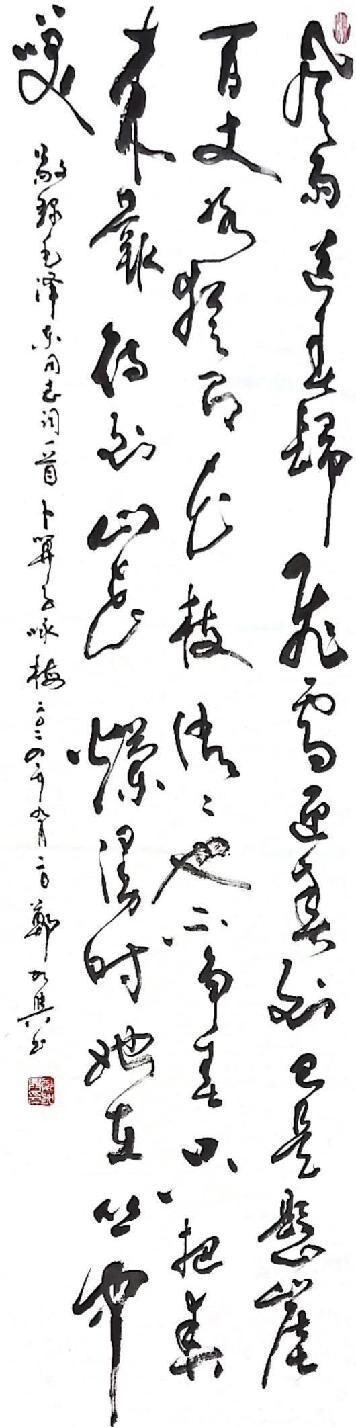 風雨送春歸飛雪迎春到已是懸崖
百丈冰猶有花枝俏〻也不争春只把春
来報待到山花爛漫時她在丛中
笑
敬録毛泽东同志词一首卜算子咏梅二〇二四年九月二日鄭興书